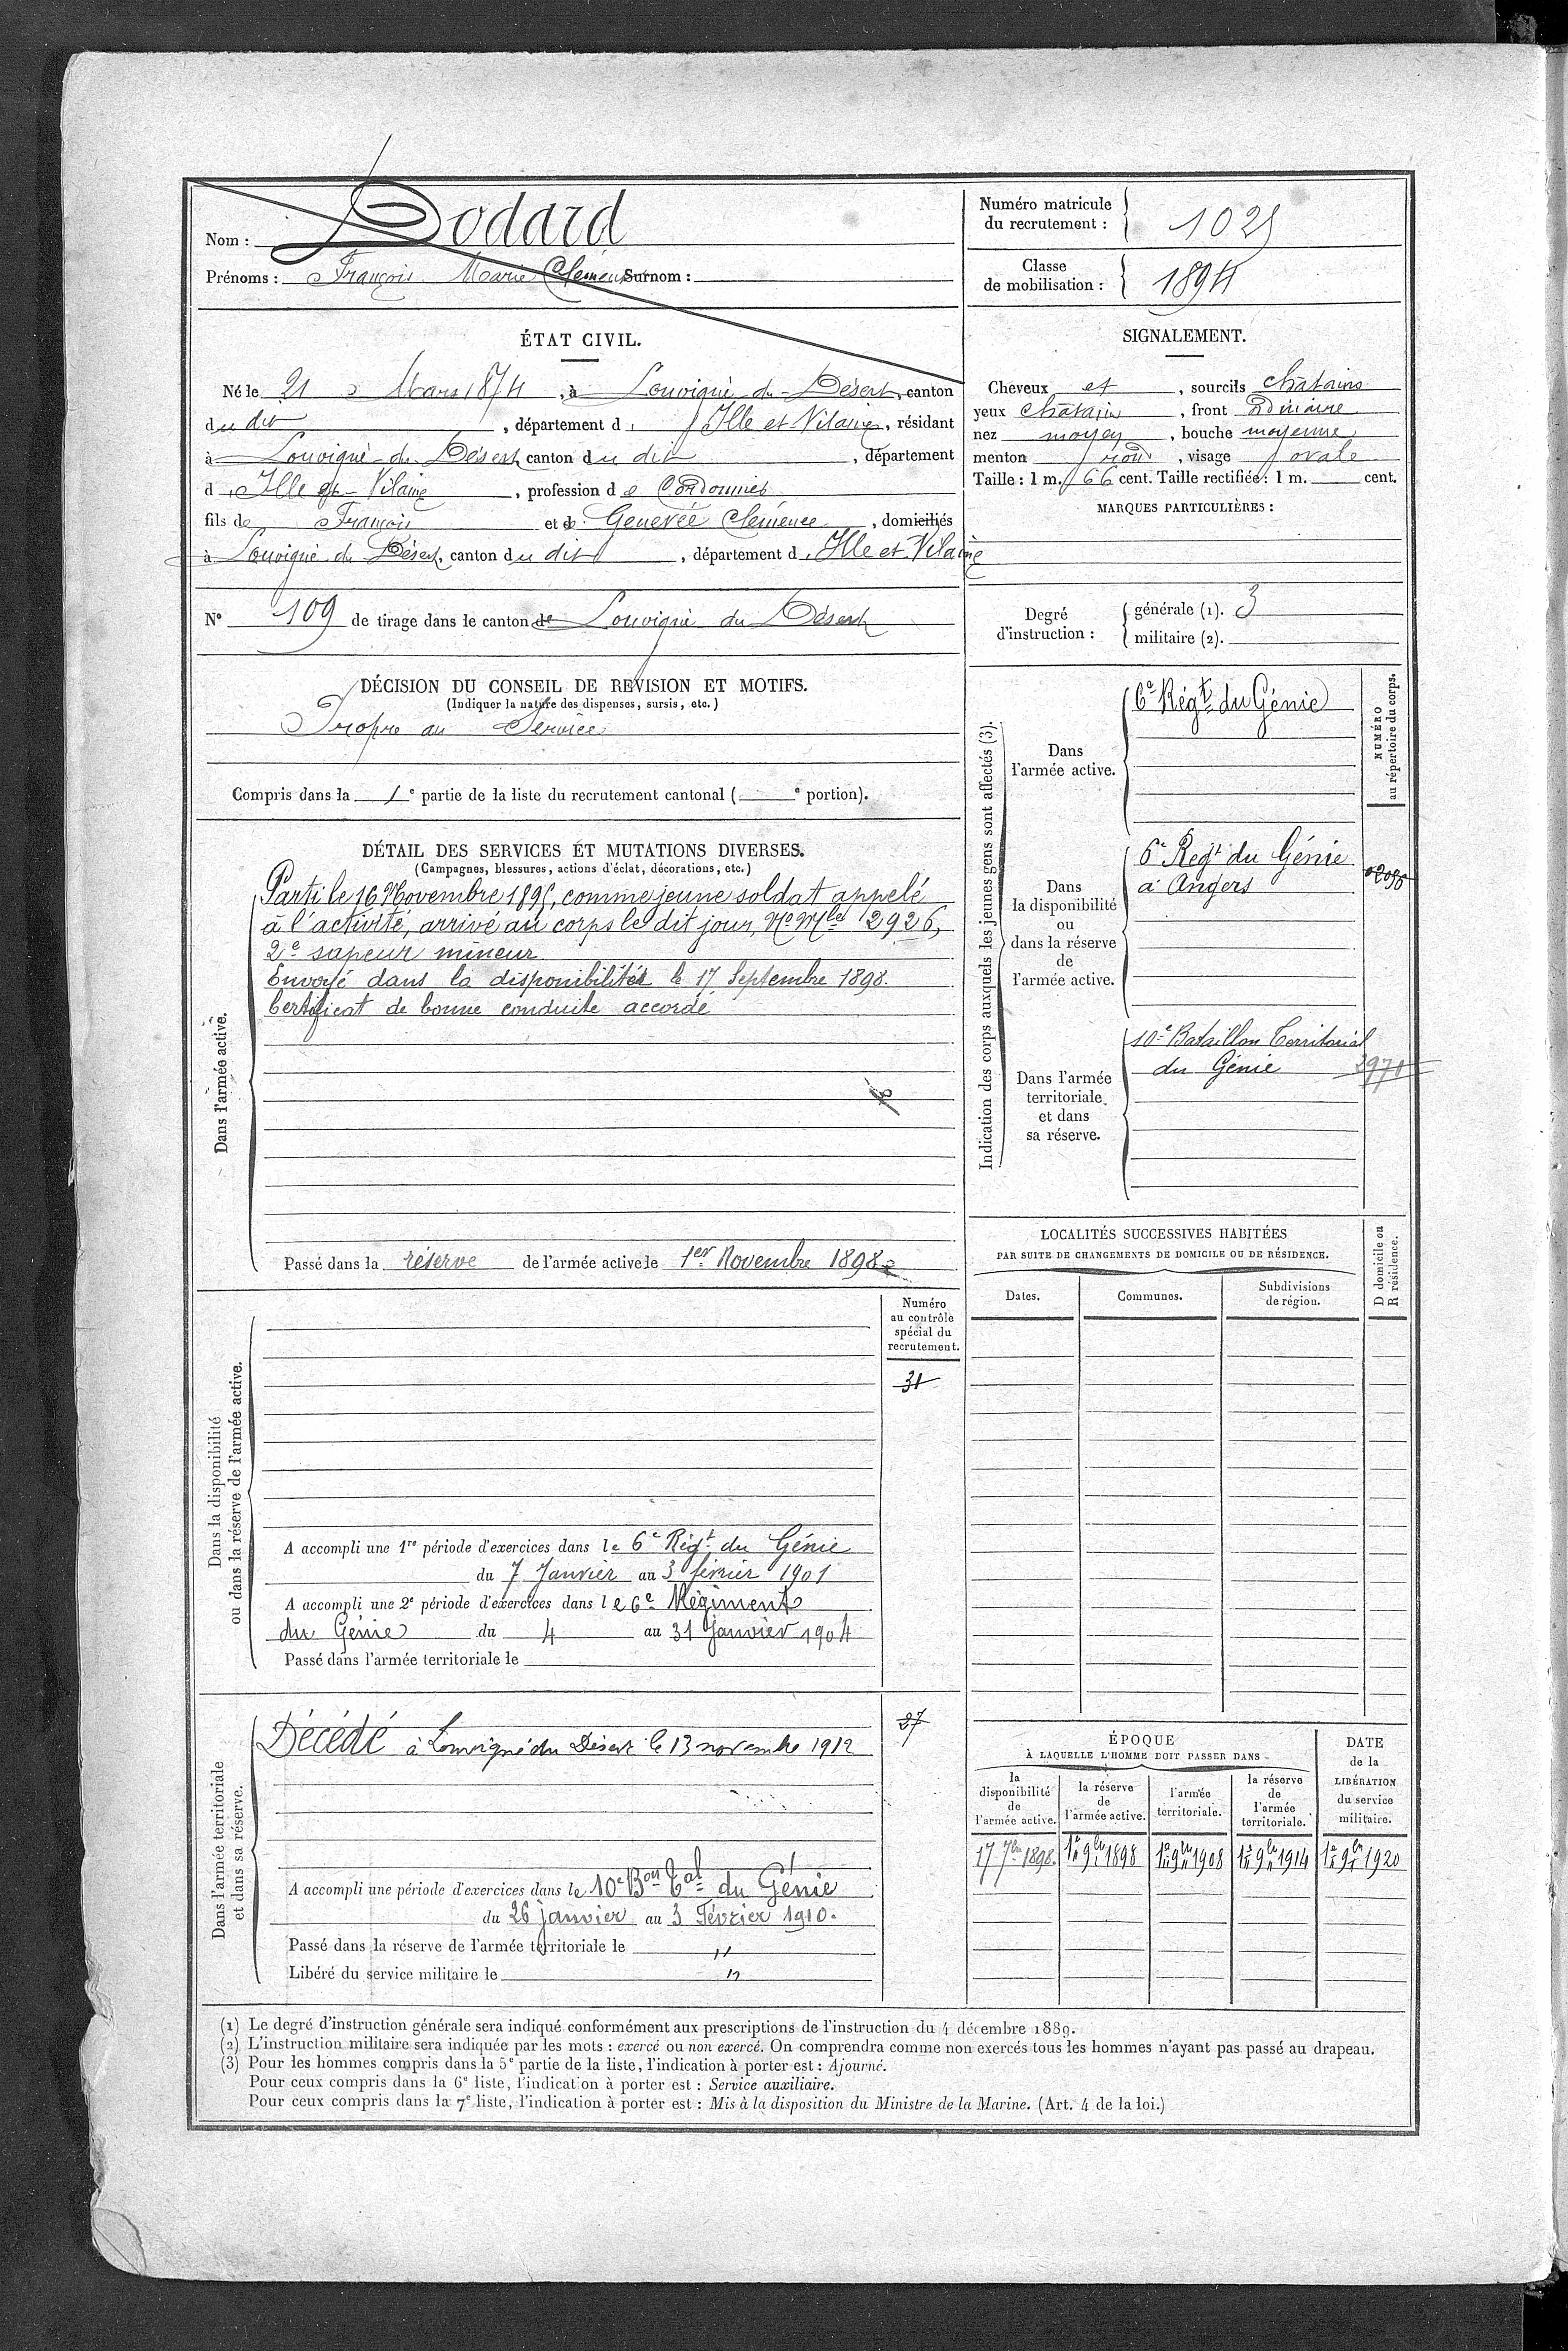 Nom : Dodard
Prénoms : François Marie Clément Surnom :
Numéro matricule
du recrutement : 1025
Classe
de mobilisation : 1894
ÉTAT CIVIL.
Né le 21 Mars 1874, à Louvigné-du-Désert, canton
du dit, département d'Ille et Vilaine, résidant
à Louvigné-du-Désert, canton du dit, département
d'Ille et Vilaine, profession de Cordonnier
fils de François et de Genevée Clémence, domiciliés
à Louvigné du Désert, canton du dit, département d'Ille et Vilaine
N° 109 de tirage dans le canton de Louvigné du Désert
DÉCISION DU CONSEIL DE REVISION ET MOTIFS.
(Indiquer la nature des dispenses, sursis, etc.)
Propre au Service
Compris dans la 1e partie de la liste du recrutement cantonal ( e portion).
DÉTAIL DES SERVICES ET MUTATIONS DIVERSES.
(Campagnes, blessures, actions d'éclat, décorations, etc.)
Dans l'armée active.
Parti le 16 Novembre 1895, comme jeune soldat appelé
à l'activité, arrivé au corps le dit jour, No Mle 2926,
2e sapeur mineur
Envoyé dans la disponibilité le 17 Septembre 1898.
Certificat de bonne conduite accordé
Passé dans la réserve de l'armée active le 1er Novembre 1898
Dans la disponibilité
ou dans la réserve de l'armée active.
Numéro
au contrôle
spécial du
recrutement.
31
A accompli une 1re période d'exercices dans le 6e Régt du Génie
du 7 Janvier au 3 février 1901
A accompli une 2e période d'exercices dans le 6e Régiment
du Génie du 4 au 31 Janvier 1904
Passé dans l'armée territoriale le
Dans l'armée territoriale
et dans sa réserve.
27
Décédé à Louvigné du Désert le 13 novembre 1912
A accompli une période d'exercices dans le 10e Bon Tal du Génie
du 26 janvier au 3 Février 1910.
Passé dans la réserve de l'armée territoriale le "
Libéré du service militaire le "
SIGNALEMENT.
Cheveux et, sourcils châtains
yeux châtain, front ordinaire
nez moyen, bouche moyenne
menton rond, visage ovale
Taille : 1 m. 66 cent. Taille rectifiée : 1 m. cent.
MARQUES PARTICULIÈRES :
Degré
d'instruction :
générale (1). 3
militaire (2).
Indication des corps auxquels les jeunes gens sont affectés (3).
NUMÉRO
au répertoire du corps.
Dans
l'armée active.
6e Régt du Génie
Dans
la disponibilité
ou
dans la réserve
de
l'armée active.
6e Régt du Génie
à Angers
Dans l'armée
territoriale
et dans
sa réserve.
10e Bataillon Territorial
du Génie 3970
LOCALITÉS SUCCESSIVES HABITÉES
PAR SUITE DE CHANGEMENTS DE DOMICILE OU DE RÉSIDENCE.
D domicile ou
R résidence.
Dates. Communes. Subdivisions
de région.
ÉPOQUE
À LAQUELLE L'HOMME DOIT PASSER DANS
la
disponibilité
de
l'armée active.
la réserve
de
l'armée active.
l'armée
territoriale.
la réserve
de
l'armée
territoriale.
DATE
de la
LIBÉRATION
du service
militaire.
17 7bre 1898. 1er 9bre 1898 1er 9bre 1908 1er 9bre 1914 1er 9bre 1920
(1) Le degré d'instruction générale sera indiqué conformément aux prescriptions de l'instruction du 4 décembre 1889.
(2) L'instruction militaire sera indiquée par les mots : exercé ou non exercé. On comprendra comme non exercés tous les hommes n'ayant pas passé au drapeau.
(3) Pour les hommes compris dans la 5e partie de la liste, l'indication à porter est : Ajourné.
Pour ceux compris dans la 6e liste, l'indication à porter est : Service auxiliaire.
Pour ceux compris dans la 7e liste, l'indication à porter est : Mis à la disposition du Ministre de la Marine. (Art. 4 de la loi.)